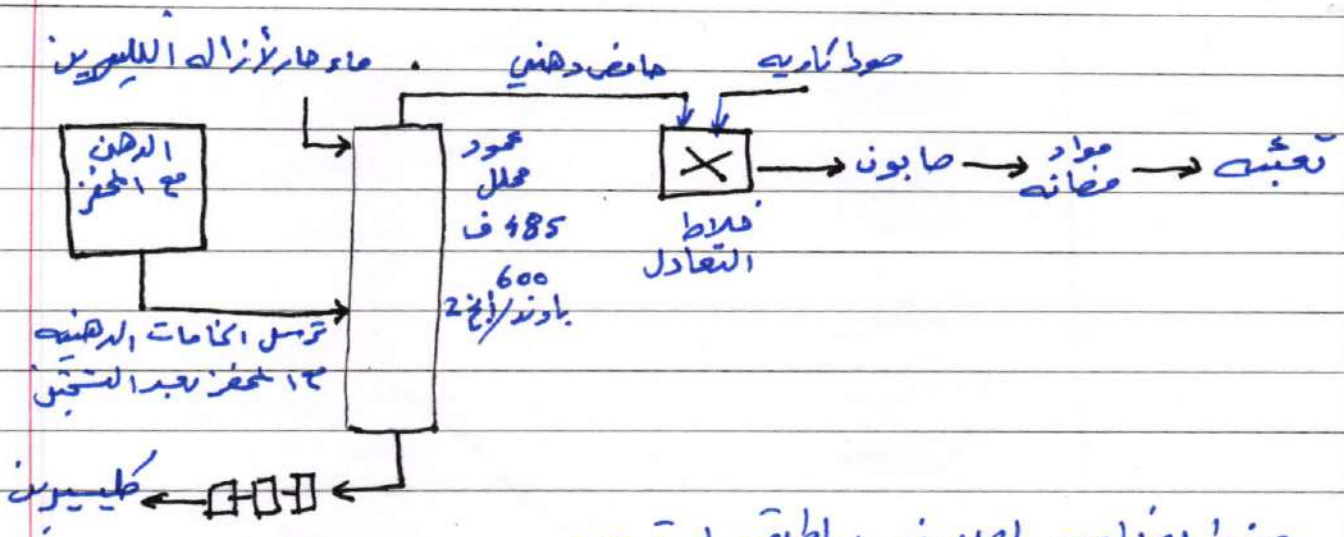 ماء حار لأزاله الگليسيرين
حامض دهني
صودا كاويه
الدهن
مع المحفز
عمود
محلل
485 ف
600
باوند/أنج2
خلاط
التعادل
صابون
مواد
مضافه
تعبئه
ترسل الخامات الدهنيه
مع المحفز بعد التسخين
كليسيرين